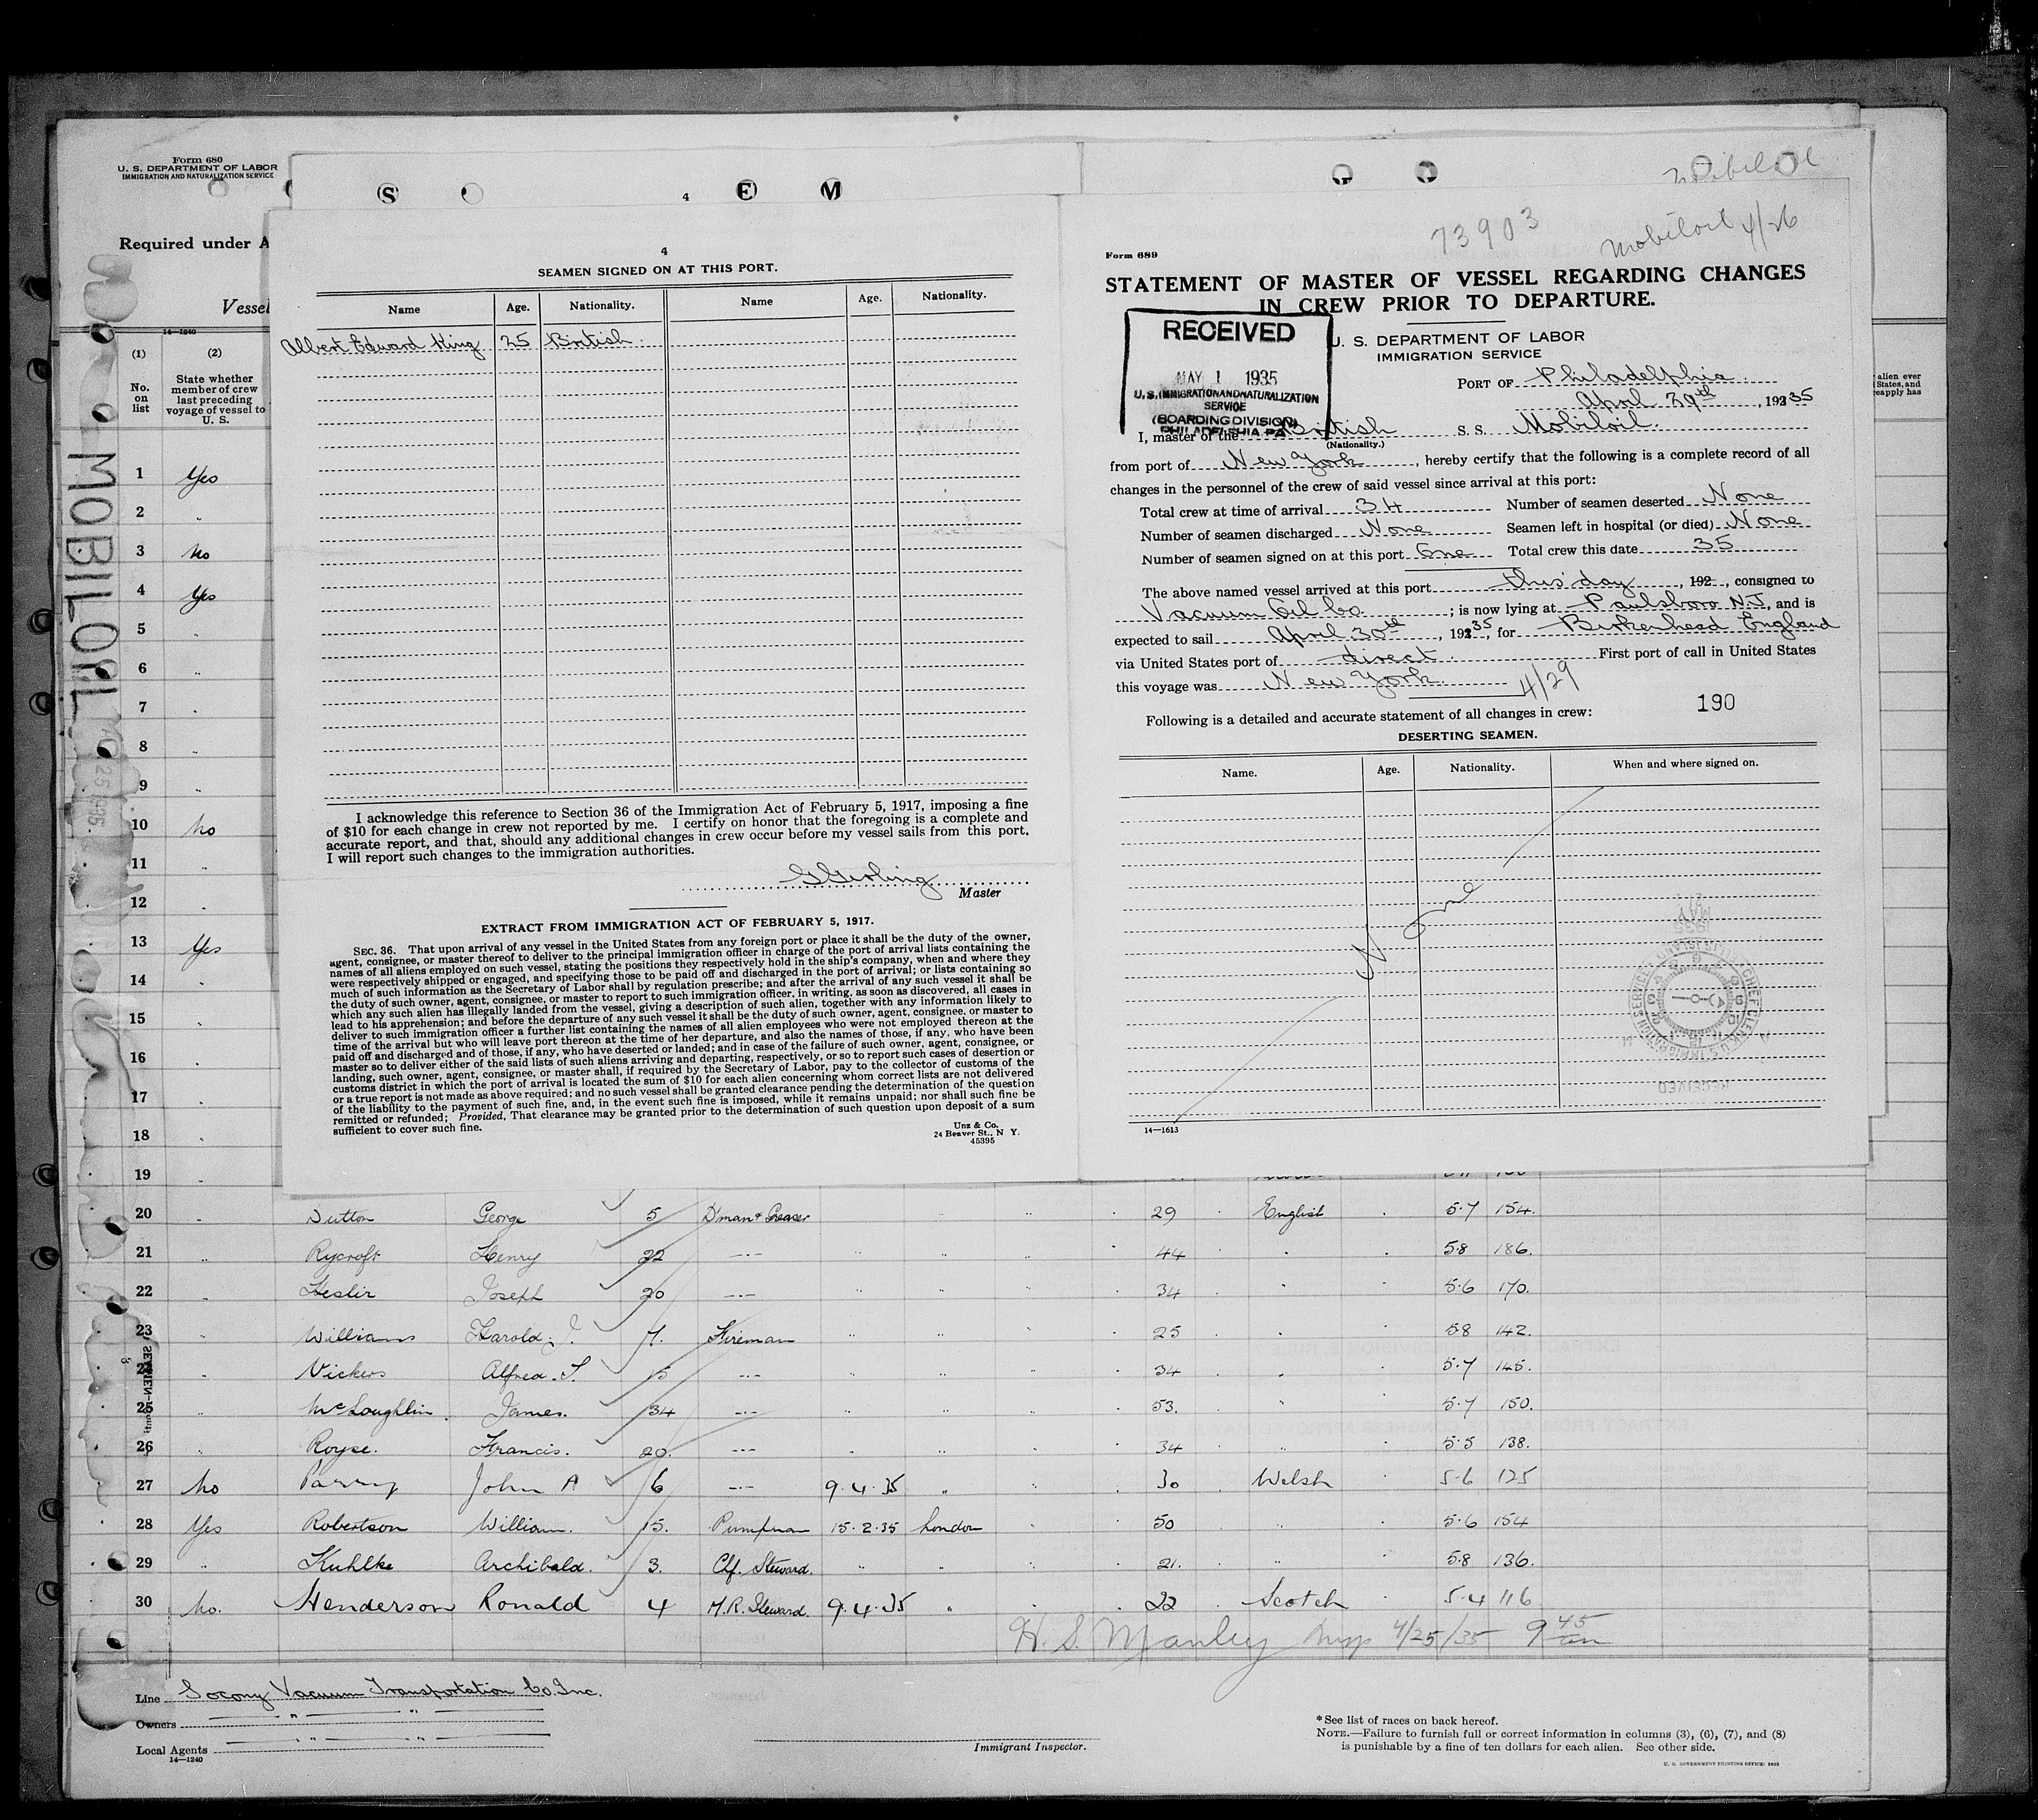 Form 680
U. S. DEPARTMENT OF LABOR
IMMIGRATION AND NATURALIZATION SERVICE
Required under A
Vessel
14—1240
(1) (2)
No. on list
State whether member of crew last preceding voyage of vessel to U. S.
MOBILOIL
1 Yes
2 "
3 No
4 Yes
5 "
6 "
7 "
8 "
9 "
10 No
11 "
12 "
13 Yes
14 "
15 "
16 "
17 "
18 "
19 "
S E M
4
4
SEAMEN SIGNED ON AT THIS PORT.
Name Age. Nationality. Name Age. Nationality.
Albert Edward King 25 British
I acknowledge this reference to Section 36 of the Immigration Act of February 5, 1917, imposing a fine
of $10 for each change in crew not reported by me. I certify on honor that the foregoing is a complete and
accurate report, and that, should any additional changes in crew occur before my vessel sails from this port,
I will report such changes to the immigration authorities.
Master
EXTRACT FROM IMMIGRATION ACT OF FEBRUARY 5, 1917.
SEC. 36. That upon arrival of any vessel in the United States from any foreign port or place it shall be the duty of the owner,
agent, consignee, or master thereof to deliver to the principal immigration officer in charge of the port of arrival lists containing the
names of all aliens employed on such vessel, stating the positions they respectively hold in the ship's company, when and where they
were respectively shipped or engaged, and specifying those to be paid off and discharged in the port of arrival; or lists containing so
much of such information as the Secretary of Labor shall by regulation prescribe; and after the arrival of any such vessel it shall be
the duty of such owner, agent, consignee, or master to report to such immigration officer, in writing, as soon as discovered, all cases in
which any such alien has illegally landed from the vessel, giving a description of such alien, together with any information likely to
lead to his apprehension; and before the departure of any such vessel it shall be the duty of such owner, agent, consignee, or master to
deliver to such immigration officer a further list containing the names of all alien employees who were not employed thereon at the
time of the arrival but who will leave port thereon at the time of her departure, and also the names of those, if any, who have been
paid off and discharged and of those, if any, who have deserted or landed; and in case of the failure of such owner, agent, consignee, or
master so to deliver either of the said lists of such aliens arriving and departing, respectively, or so to report such cases of desertion or
landing, such owner, agent, consignee, or master shall, if required by the Secretary of Labor, pay to the collector of customs of the
customs district in which the port of arrival is located the sum of $10 for each alien concerning whom correct lists are not delivered
or a true report is not made as above required; and no such vessel shall be granted clearance pending the determination of the question
of the liability to the payment of such fine, and, in the event such fine is imposed, while it remains unpaid; nor shall such fine be
remitted or refunded; Provided, That clearance may be granted prior to the determination of such question upon deposit of a sum
sufficient to cover such fine.
Unz & Co.
24 Beaver St., N Y.
45395
Mobiloil
73903
Mobiloil 4/26
Form 689
STATEMENT OF MASTER OF VESSEL REGARDING CHANGES
IN CREW PRIOR TO DEPARTURE.
RECEIVED
MAY 1 1935
U. S. IMMIGRATION AND NATURALIZATION
SERVICE
(BOARDING DIVISION)
PHILADELPHIA PA
U. S. DEPARTMENT OF LABOR
IMMIGRATION SERVICE
PORT OF Philadelphia
April 29th, 19235
I, master of the British S. S. Mobiloil
(Nationality.)
from port of New York, hereby certify that the following is a complete record of all
changes in the personnel of the crew of said vessel since arrival at this port:
Total crew at time of arrival 34 Number of seamen deserted None
Number of seamen discharged None Seamen left in hospital (or died) None
Number of seamen signed on at this port One Total crew this date 35
The above named vessel arrived at this port this day, 192 , consigned to
Vacuum Oil Co. ; is now lying at Paulsboro N.J., and is
expected to sail April 30th, 19235, for Birkenhead England
via United States port of direct. First port of call in United States
this voyage was New York. 4/29
190
Following is a detailed and accurate statement of all changes in crew:
DESERTING SEAMEN.
Name. Age. Nationality. When and where signed on.
None
14—1613
alien ever
States, and
reapply has
20 " Dutton George 5 D'man & Greaser " " " 29 English 5·7 154.
21 " Rycroft Henry 22 —"— " " " 44 " 5·8 186.
22 " Heslir Joseph 20 —"— " " " 34 " 5·6 170.
23 " Williams Harold J. 7. Fireman " " " 25 " 5·8 142.
24 " Vickers Alfred. S. 15 —"— " " 34 " 5·7 145.
25 " McLoughlin James. 34 —"— " " " 53. " 5·7 150.
26 " Royse. Francis. 20. —"— " " " 34 " 5·5 138.
27 No Parry John A 6 —"— 9·4·35 " " 30 Welsh 5·6 125
28 Yes Robertson William. 15. Pumpman 15·2·35 London 50 " 5·6 154
29 " Kuhlke Archibald. 3. Chf. Steward. " " 21. " 5·8 136.
30 No. Henderson Ronald 4 M.R. Steward. 9·4·35 " 22 Scotch 5·4 116
SEAMEN
H. S. Manley Insp 4/25/35 9 45 am
Line Socony Vacuum Transportation Co. Inc.
Owners — " — " —
Local Agents — " — " —
14—1240
Immigrant Inspector.
* See list of races on back hereof.
NOTE.—Failure to furnish full or correct information in columns (3), (6), (7), and (8)
is punishable by a fine of ten dollars for each alien. See other side.
U. S. GOVERNMENT PRINTING OFFICE: 1932